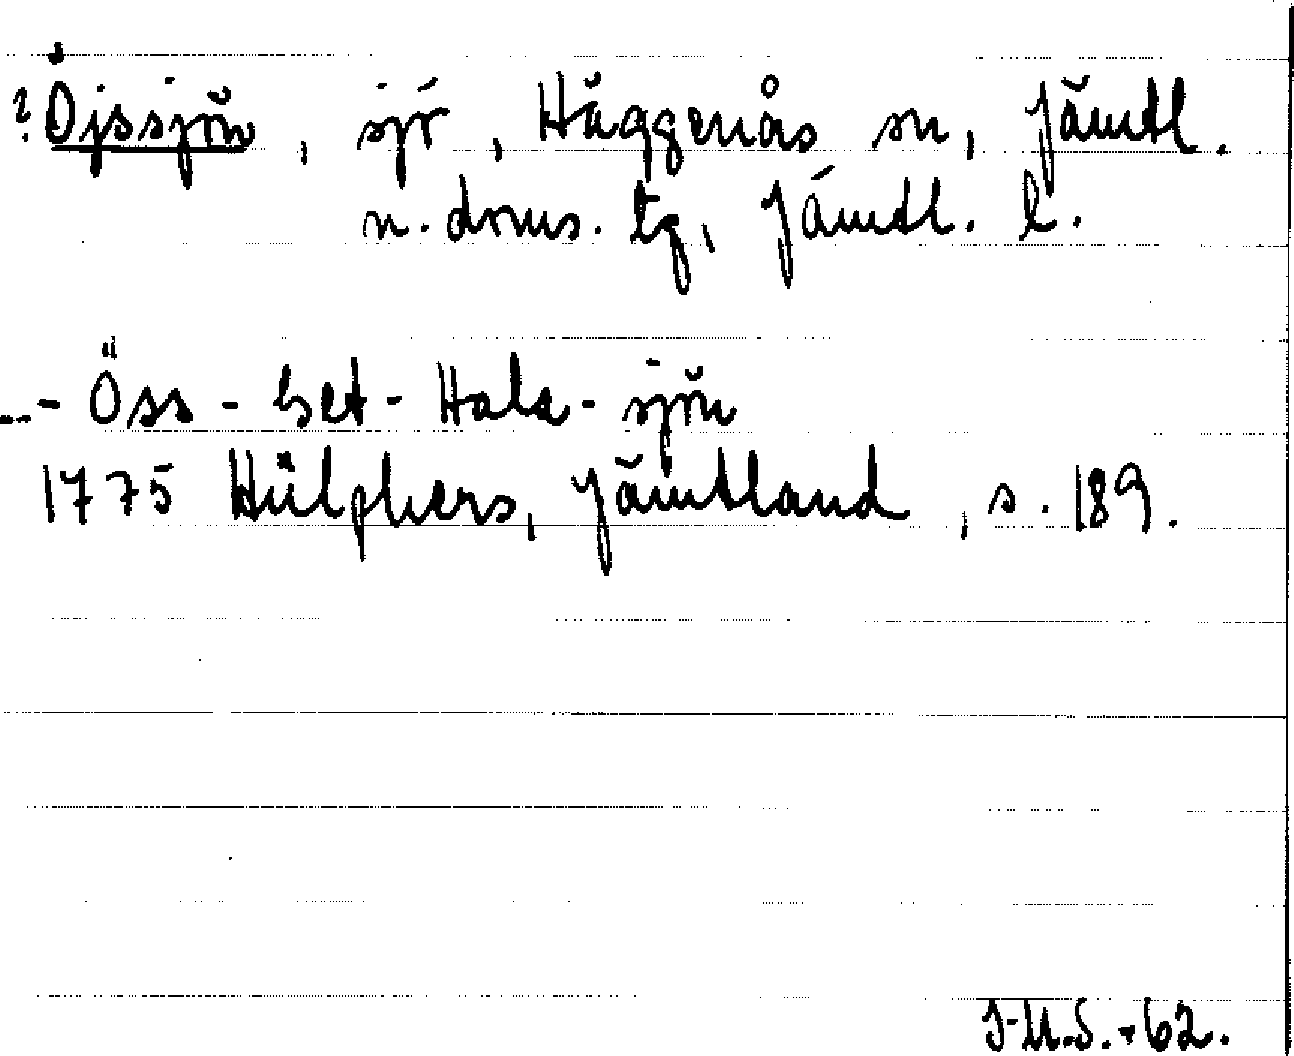 ? Öjssjön, sjö, Häggenås sn, Jämtl.
n. doms. tg, Jämtl. l.
--- Öss - Set - Hala - sjön
1775 Hülphers, Jämtland, s. 189.
J-U.S. -62.